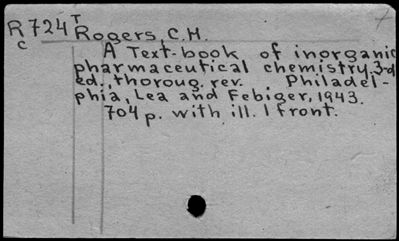 R724T Rogers, C.H.
c
A Text-book of inorganic
pharmaceutical chemistry. 3-d
ed., thoroug. rev. Philadel-
phia, Lea and Febiger, 1943.
704 p. with ill. 1 front.